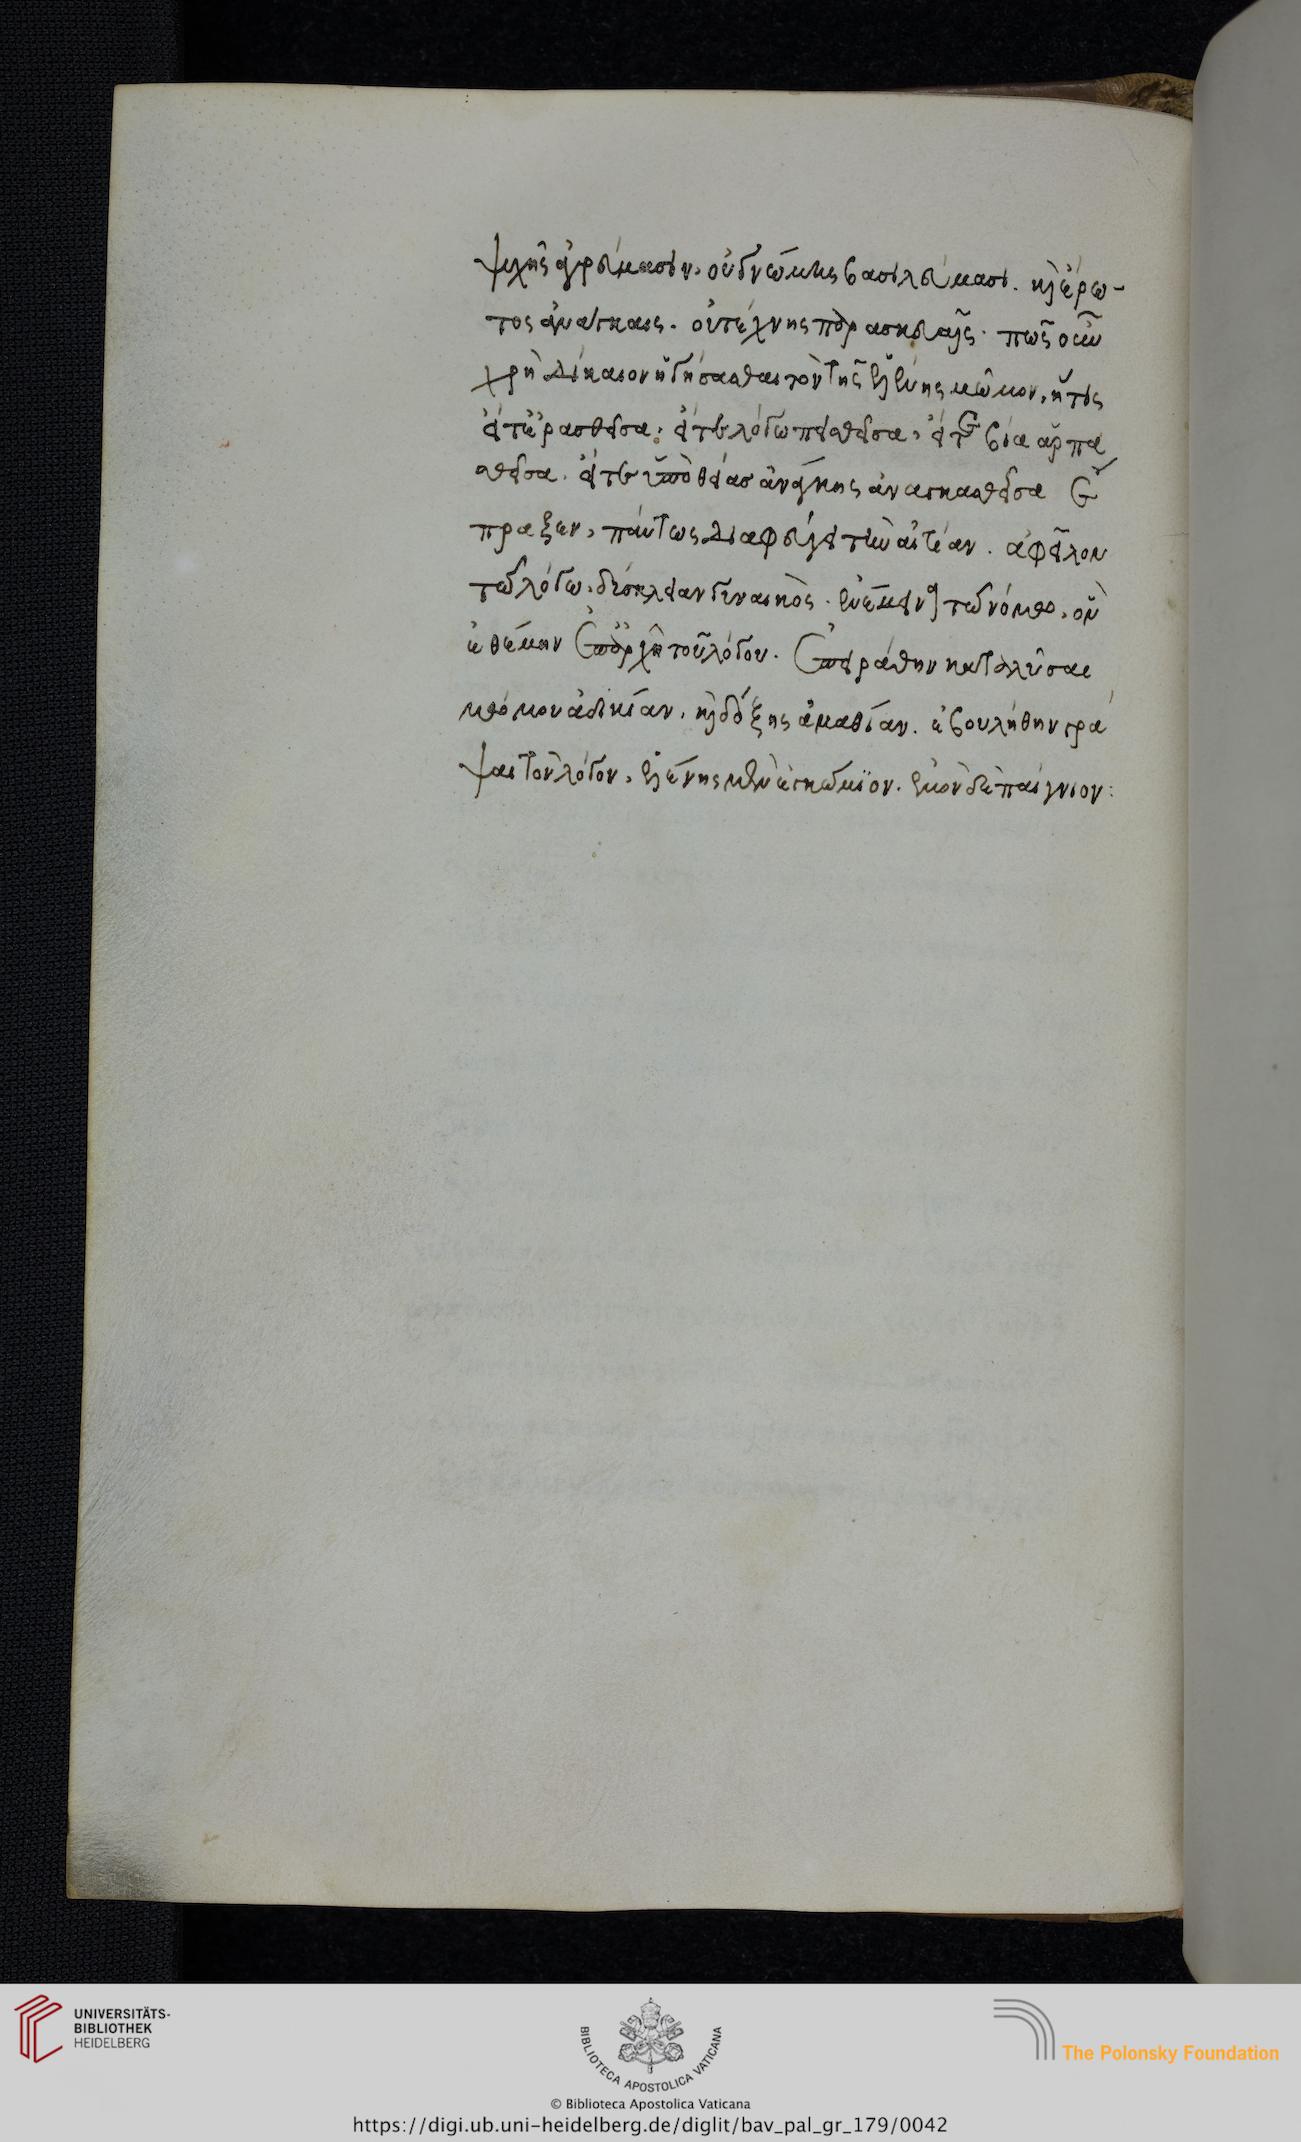 ψυχῆς ἀγρεύμασιν, οὐ γνώμης βουλεύμασι. καὶ ἔρω-
τος ἀνάγκαις. οὐ τέχνης παρασκευαῖς. πῶς οὖν
χρὴ δίκαιον ἡγήσασθαι τὸν τῆς ἑλένης μῶμον, ἥτις
εἴτ' ἐρασθεῖσα. εἴτε λόγω πεισθεῖσα, εἴτε βία ἁρπα
σθεῖσα. εἴτε ὑπὸ θείας ἀνάγκης ἀναγκασθεῖσα ἔ
πραξεν, πάντως διαφεύγει τὴν αἰτίαν. ἀφεῖλον
τῶ λόγω. δύσκλειαν γυναικός. ἐνέμεινα τῶ νόμω, ὃν
ἐθέμην ἐν ἀρχῆ τοῦ λόγου. ἐπειράθην καταλῦσαι
μώμου ἀδικίαν, καὶ δόξης ἀμαθίαν. ἐβουλήθην γρά
ψαι τὸν λόγον, ἑλένης μὲν ἐγκώμϊον. ἐμὸν δὲ παίγνιον:
UNIVERSITÄTS-
BIBLIOTHEK
HEIDELBERG
BIBLIOTECA APOSTOLICA VATICANA
The Polonsky Foundation
© Biblioteca Apostolica Vaticana
https://digi.ub.uni-heidelberg.de/diglit/bav_pal_gr_179/0042